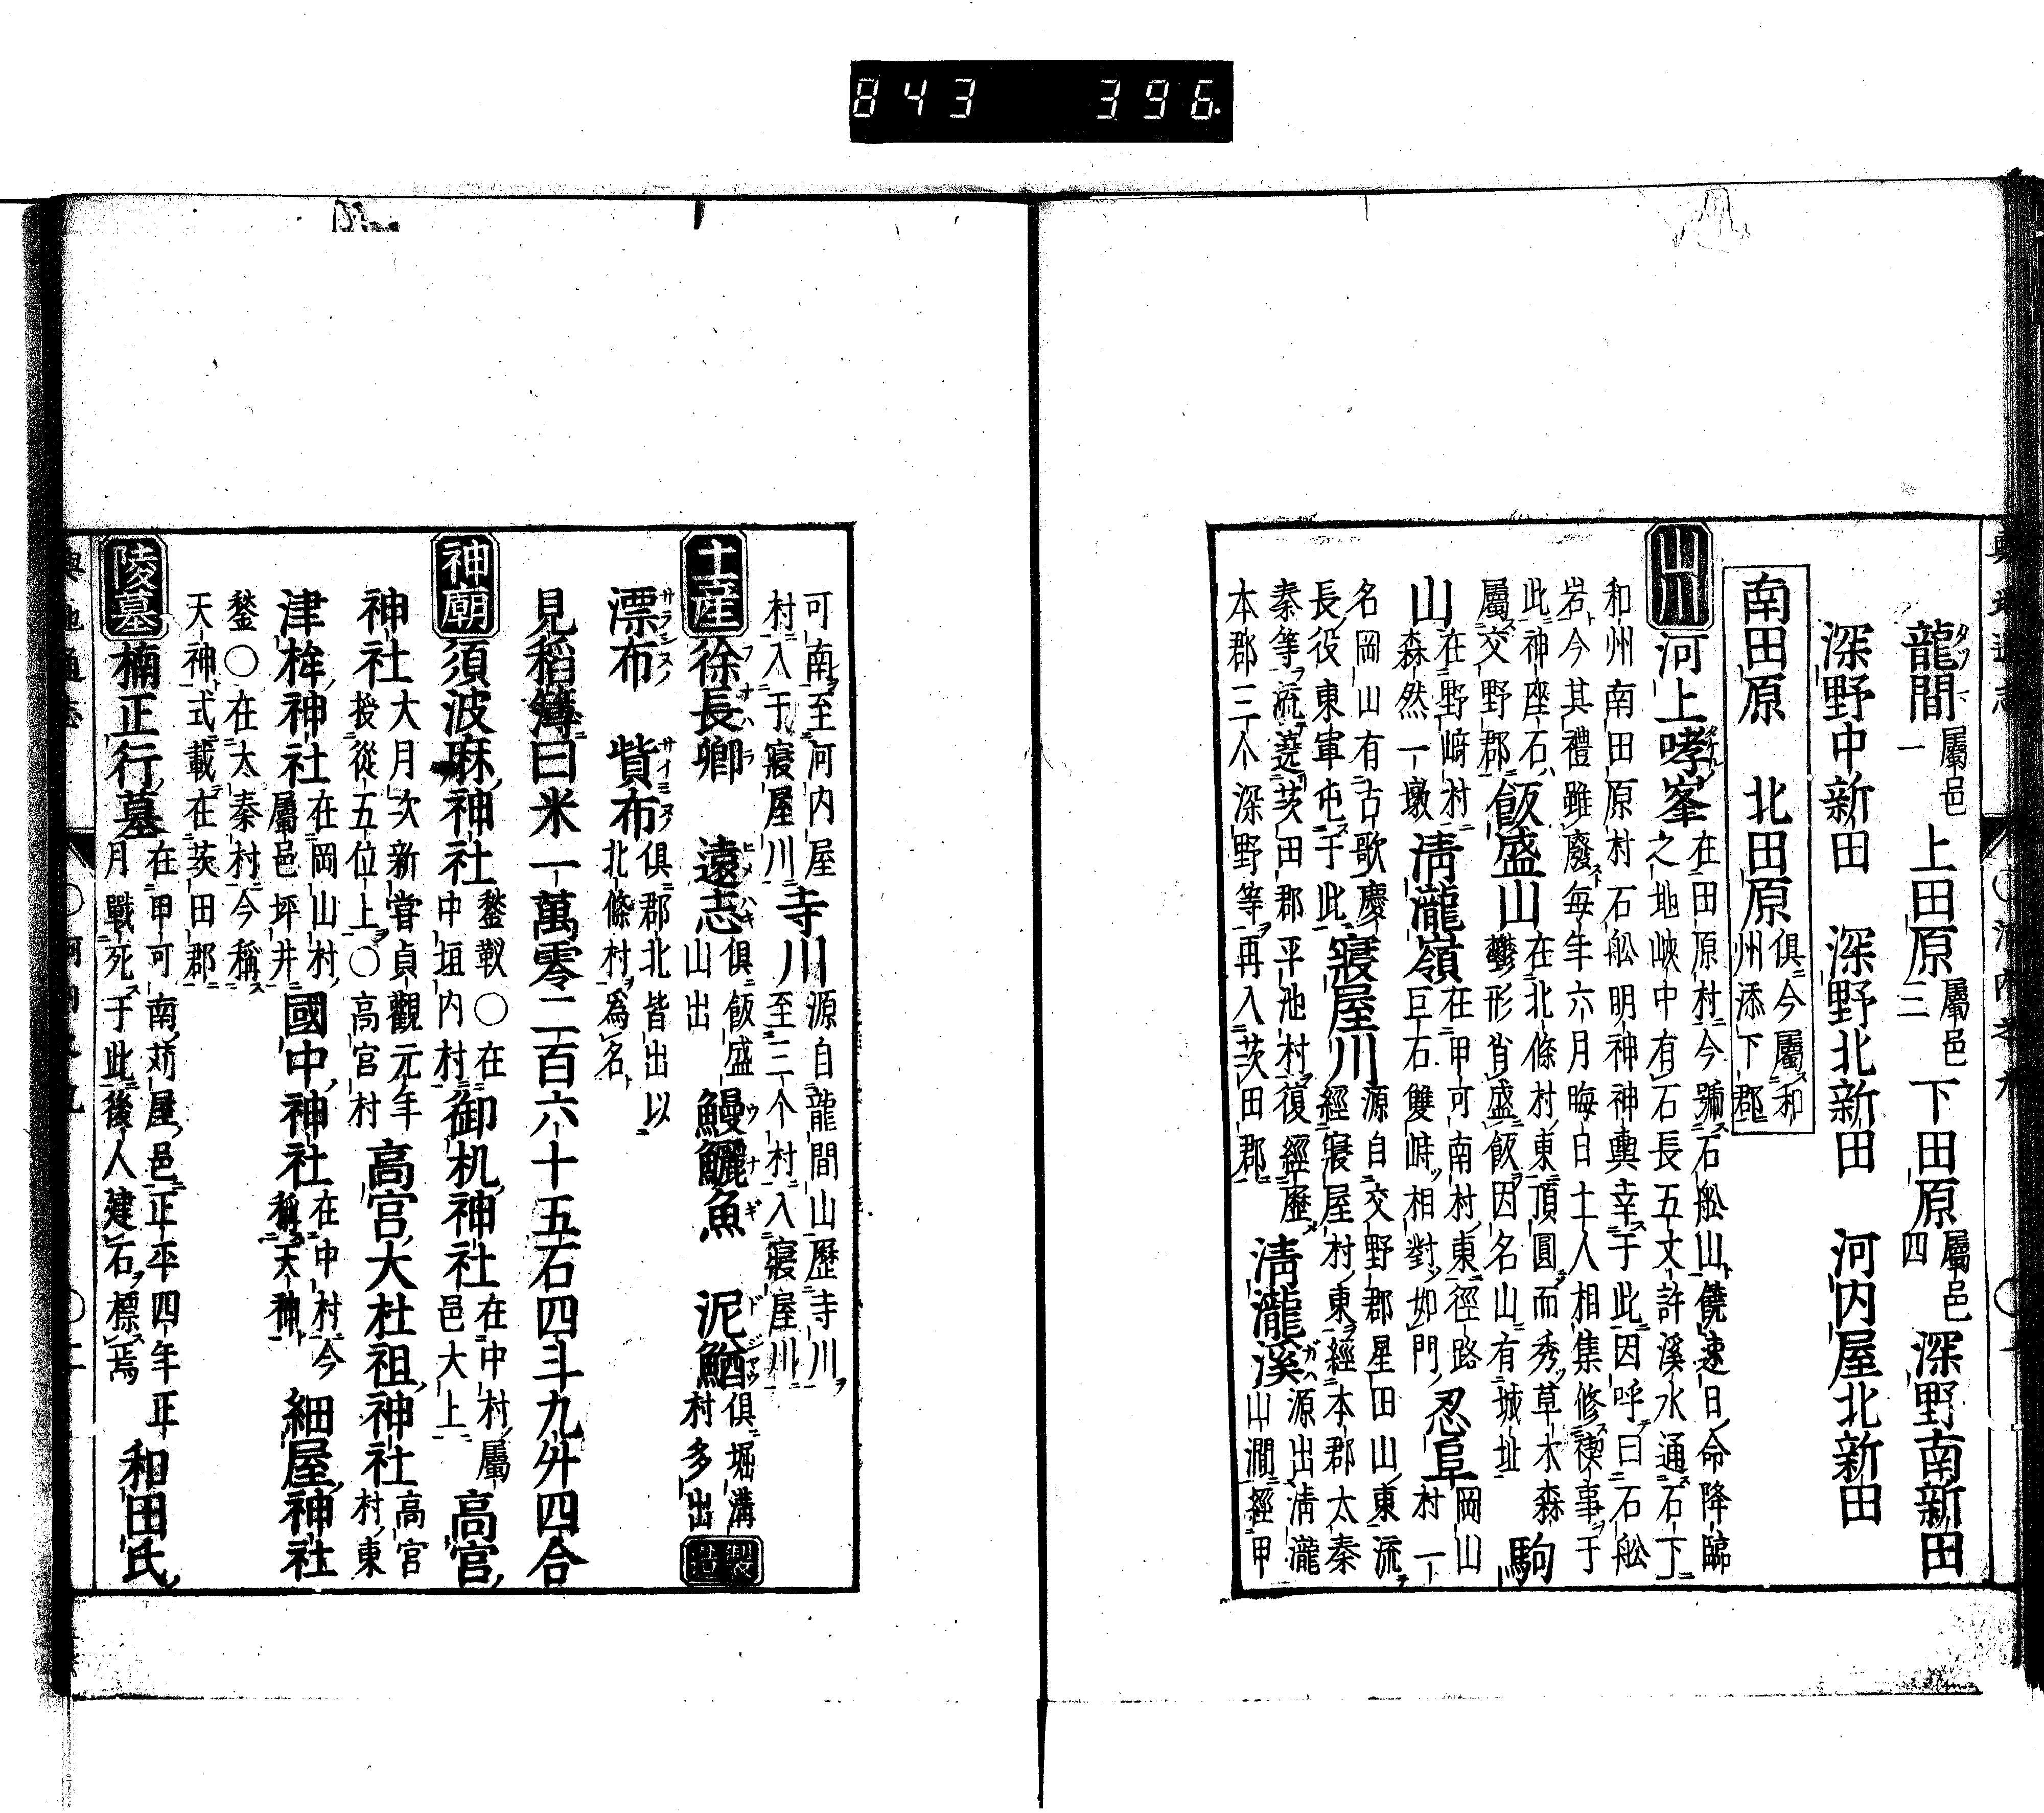 843 396
龍間屬邑一 上田原屬邑三 下田原屬邑四 深野南新田
深野中新田 深野北新田 河内屋北新田
南田原 北田原俱今屬和州添下郡
山川
河上哮峯在田原村今號石舩山饒速日命降臨之地峽中有石長五丈許溪水通石下
和州南田原村石舩明神神輿幸于此因呼曰石舩岩今其禮雖廢每年六月晦日土人相集修禊事于
此神座石屬交野郡 飯盛山在北條村東頂圓而秀草木森鬱形肖盛飯因名山有城址 駒
山在野﨑村森然一墩 淸瀧嶺在甲可南村東徑路巨石雙峙相對如門 忍阜岡山村一
名岡山有古歌慶長役東軍屯于此 寢屋川源自交野郡星田山東流經寢屋村東經本郡太秦
秦等流遶茨田郡平池村復經歷本郡三个深野等再入茨田郡 淸瀧溪源出淸瀧山澗經甲
可南至河内屋村入于寢屋川 寺川源自龍間山歷寺川至三个村入寢屋川
土産
徐長卿 遠志俱飯盛山出 鰻鱺魚 泥鰌俱堀溝村多出 製造
漂布 貲布俱郡北皆出以北條村爲名
見稻簿曰米一萬零二百六十五石四斗九舛四合
神廟
須波麻神社鍫靫〇在中垣内村 御机神社在中村屬邑大上 高宮
神社大月次新甞貞觀元年授從五位上〇高宮村 高宮大杜祖神社高宮村東
津桙神社在岡山村屬邑坪井 國中神社在中村今稱天神 細屋神社
鍫〇在太秦村今稱天神式載在茨田郡
陵墓
楠正行墓在甲可南苅屋邑正平四年正月戰死于此後人建石標焉 和田氏